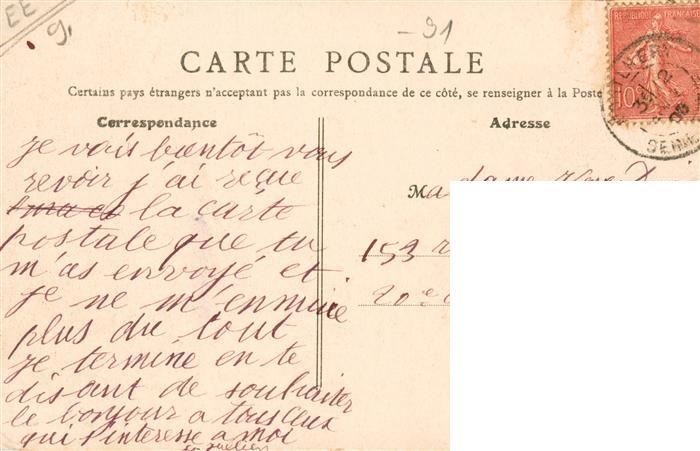 EE
9.
-91
CARTE POSTALE
Certains pays étrangers n'acceptant pas la correspondance de ce côté, se renseigner à la Poste
RÉPUBLIQUE FRANÇAISE
10
Correspondance
Adresse
je vais bientôt vous
revoir j'ai reçue
la carte
postale que tu
m'as envoyé et
je ne m'ennuie
plus du tout
je termine en te
disant de souhaiter
le bonjour a tous ceux
qui s'interesse a moi
Madame
153
20e